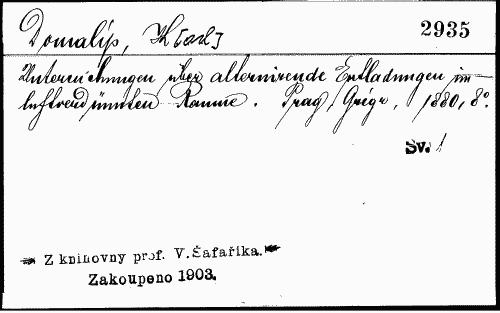 Domalíp, K[arl]
2935
Untersuchungen über alternirende Entladungen im
luftverdünnten Raume. Prag, Grégr, 1880, 8°.
Sv. 1
Z knihovny prof. V. Šafaříka.
Zakoupeno 1903.